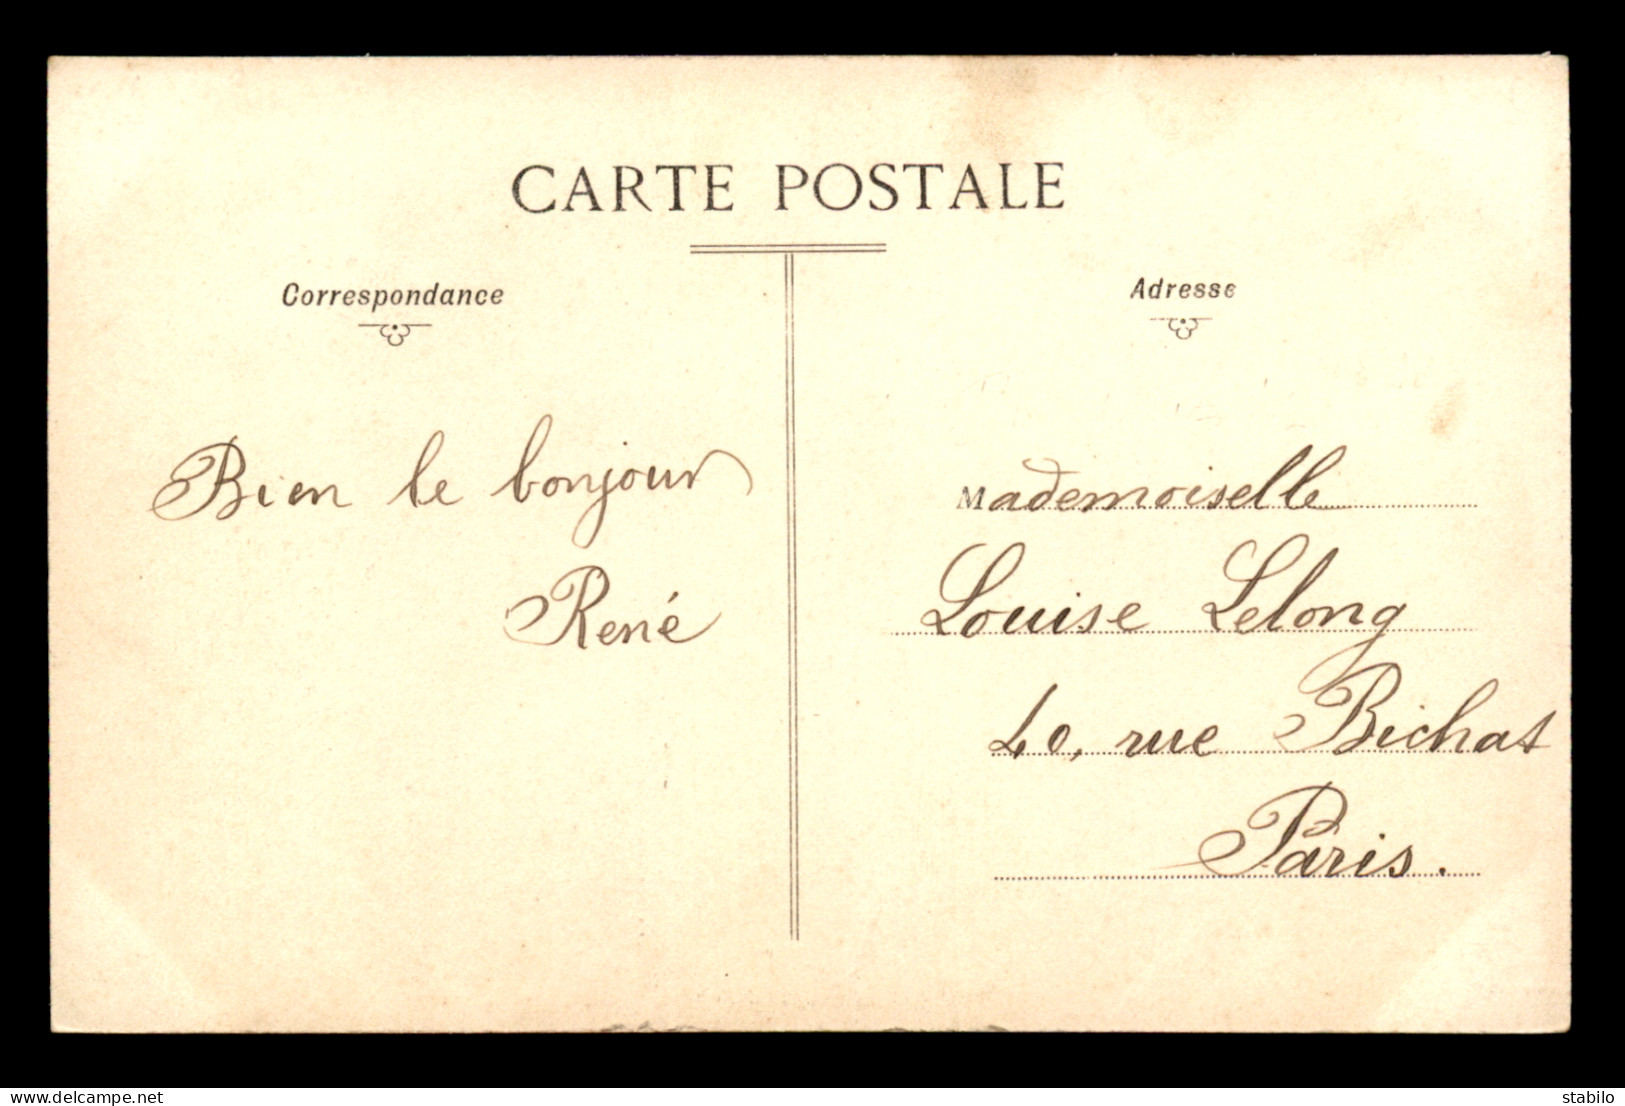 CARTE POSTALE
Correspondance
Adresse
Bien le bonjour
René
Mademoiselle
Louise Lelong
40, rue Bichat
Paris.
www.delcampe.net
stabilo